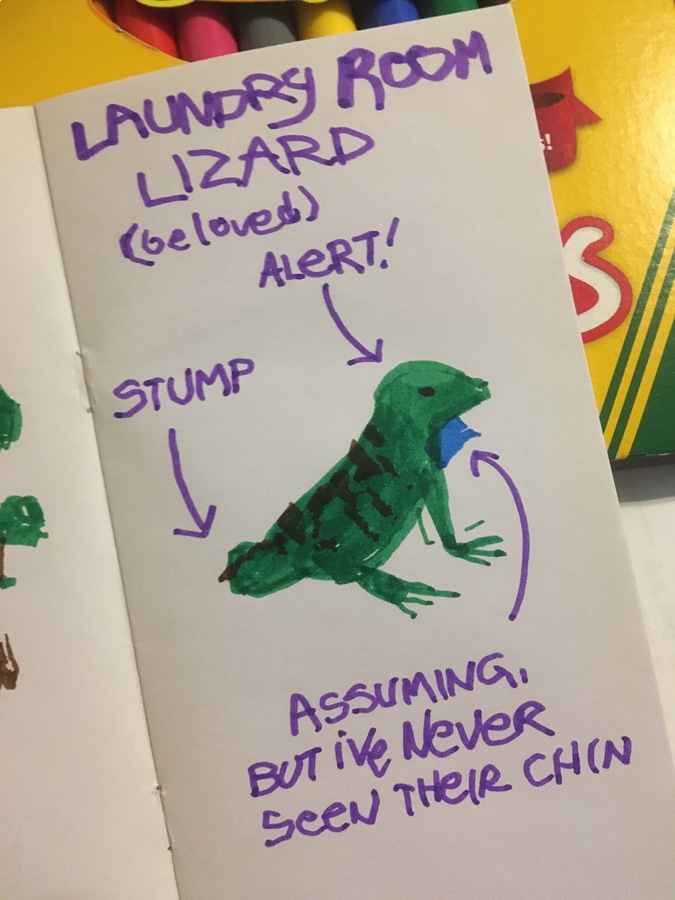 LAUNDRY ROOM
LIZARD
(beloved)
ALERT!
STUMP
ASSUMING,
BUT i've NEVER
SEEN THEIR CHIN
s!
S